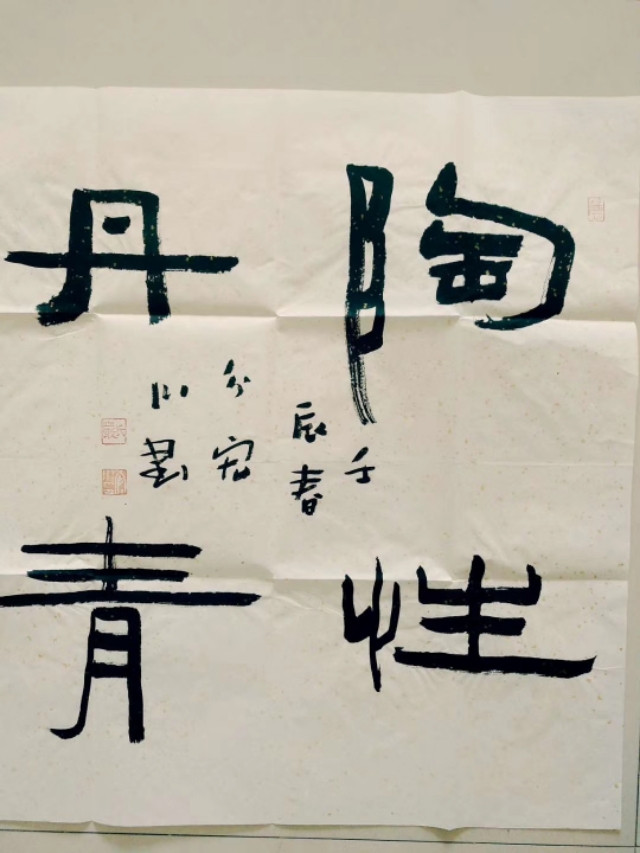 陶性
丹青
壬
辰春
分宏
川書